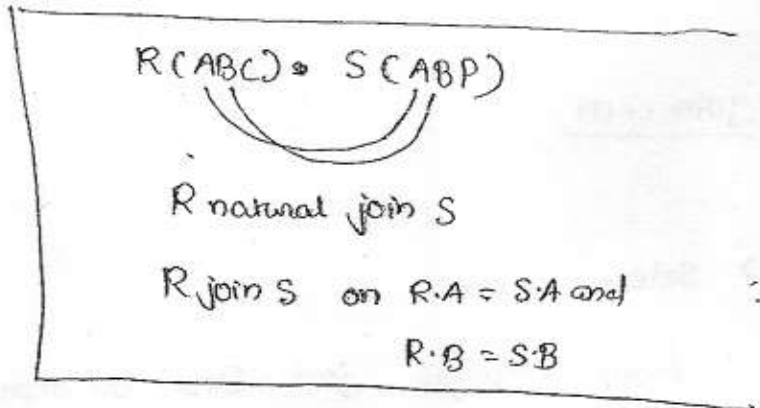 R(ABC) • S(ABP)
R natural join S
R join S on R.A = S.A and
R.B = S.B